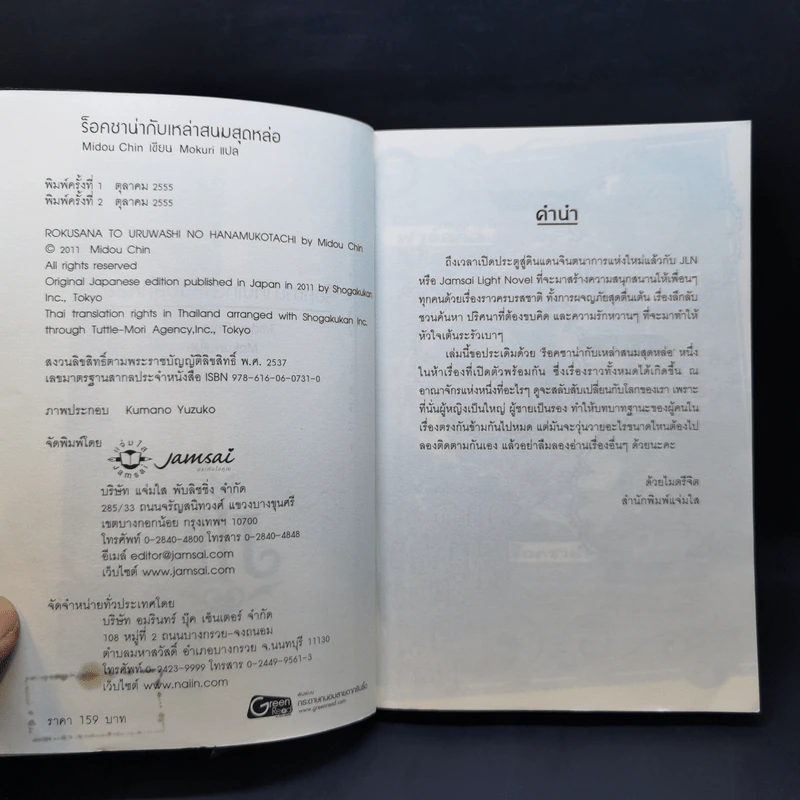 ร็อคซาน่ากับเหล่าสนมสุดหล่อ
Midou Chin เขียน Mokuri แปล
พิมพ์ครั้งที่ 1 ตุลาคม 2555
พิมพ์ครั้งที่ 2 ตุลาคม 2555
ROKUSANA TO URUWASHI NO HANAMUKOTACHI by Midou Chin
© 2011 Midou Chin
All rights reserved
Original Japanese edition published in Japan in 2011 by Shogakukan
Inc., Tokyo
Thai translation rights in Thailand arranged with Shogakukan Inc.
through Tuttle-Mori Agency,Inc., Tokyo
สงวนลิขสิทธิ์ตามพระราชบัญญัติลิขสิทธิ์ พ.ศ. 2537
เลขมาตรฐานสากลประจำหนังสือ ISBN 978-616-06-0731-0
ภาพประกอบ Kumano Yuzuko
จัดพิมพ์โดย
แจ่มใส
Jamsai
Jamsai
บริษัท แจ่มใส พับลิชชิ่ง จำกัด
285/33 ถนนจรัญสนิทวงศ์ แขวงบางขุนศรี
เขตบางกอกน้อย กรุงเทพฯ 10700
โทรศัพท์ 0-2840-4800 โทรสาร 0-2840-4848
อีเมล์ editor@jamsai.com
เว็บไซต์ www.jamsai.com
จัดจำหน่ายทั่วประเทศโดย
บริษัท อมรินทร์ บุ๊ค เซ็นเตอร์ จำกัด
108 หมู่ที่ 2 ถนนบางกรวย-จงถนอม
ตำบลมหาสวัสดิ์ อำเภอบางกรวย จ.นนทบุรี 11130
โทรศัพท์ 0-2423-9999 โทรสาร 0-2449-9561-3
เว็บไซต์ www.naiin.com
ราคา 159 บาท
Green
Read
พิมพ์ด้วย
กระดาษถนอมสายตากรีนรี้ด
www.greenread.com
คำนำ
ถึงเวลาเปิดประตูสู่ดินแดนจินตนาการแห่งใหม่แล้วกับ JLN
หรือ Jamsai Light Novel ที่จะมาสร้างความสนุกสนานให้เพื่อนๆ
ทุกคนด้วยเรื่องราวครบรสชาติ ทั้งการผจญภัยสุดตื่นเต้น เรื่องลึกลับ
ชวนค้นหา ปริศนาที่ต้องขบคิด และความรักหวานๆ ที่จะมาทำให้
หัวใจเต้นระรัวเบาๆ
เล่มนี้ขอประเดิมด้วย 'ร็อคซาน่ากับเหล่าสนมสุดหล่อ' หนึ่ง
ในห้าเรื่องที่เปิดตัวพร้อมกัน ซึ่งเรื่องราวทั้งหมดได้เกิดขึ้น ณ
อาณาจักรแห่งหนึ่งที่อะไรๆ ดูจะสลับสับเปลี่ยนกับโลกของเรา เพราะ
ที่นั่นผู้หญิงเป็นใหญ่ ผู้ชายเป็นรอง ทำให้บทบาทฐานะของผู้คนใน
เรื่องตรงกันข้ามกันไปหมด แต่มันจะวุ่นวายอะไรขนาดไหนต้องไป
ลองติดตามกันเอง แล้วอย่าลืมลองอ่านเรื่องอื่นๆ ด้วยนะคะ
ด้วยไมตรีจิต
สำนักพิมพ์แจ่มใส